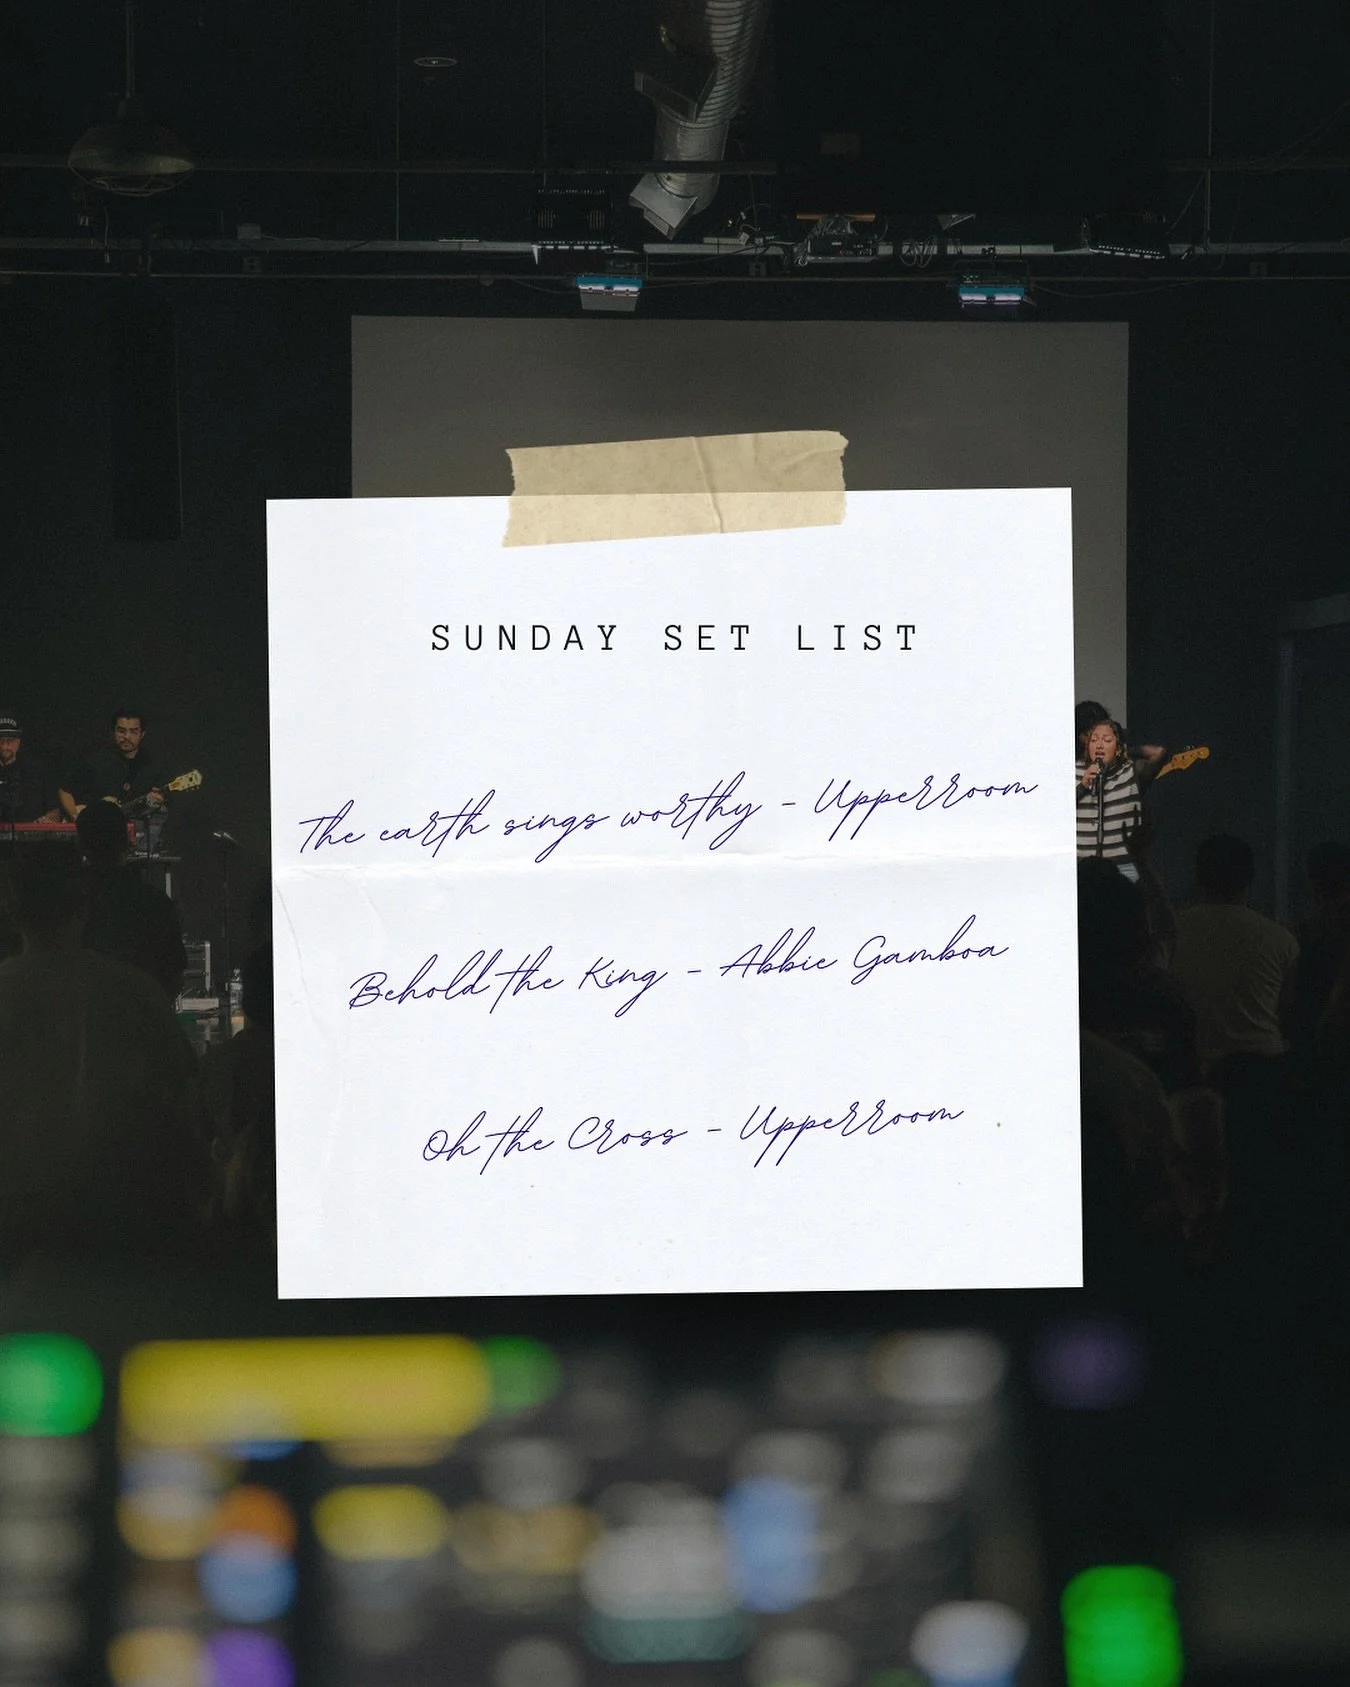 SUNDAY SET LIST
The earth sings worthy - Upperroom
Behold the King - Abbie Gamboa
Oh the Cross - Upperroom